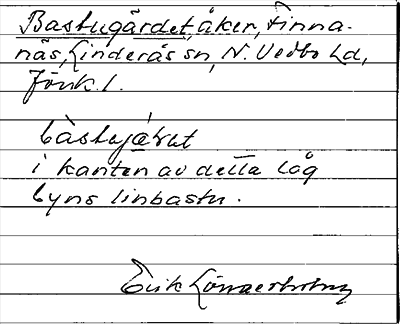 Bastugärdet, åker, Finna-
näs, Linderås sn, N. Vedbo hd,
Jönk. l.
bàstujæ̀ʀat
i kanten av detta låg
byns linbastu.
Erik